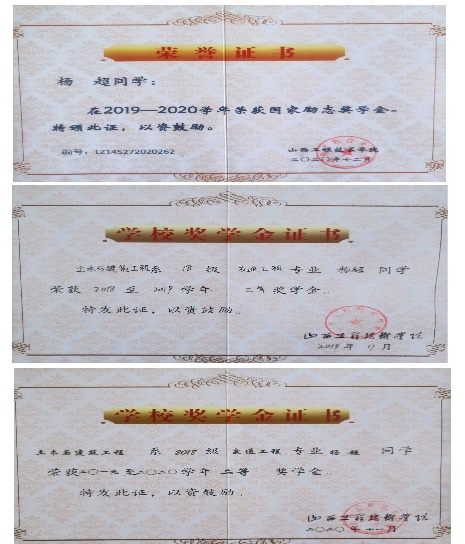 荣誉证书
杨 超同学：
在2019—2020学年荣获国家励志奖学金。
特颁此证，以资鼓励。
编号：LZ145272020262
山西工程技术学院
二〇二〇年十二月
学校奖学金证书
土木与建筑工程系 18 级 交通工程 专业 杨超 同学
荣获 2018 至 2019 学年 二等 奖学金.
特发此证，以资鼓励.
山西工程技术学院
2019 年 11 月
学校奖学金证书
土木与建筑工程 系 2018 级 交通工程 专业 杨超 同学
荣获二〇一九至二〇二〇学年 二等 奖学金.
特发此证，以资鼓励.
山西工程技术学院
二〇二〇年十一月